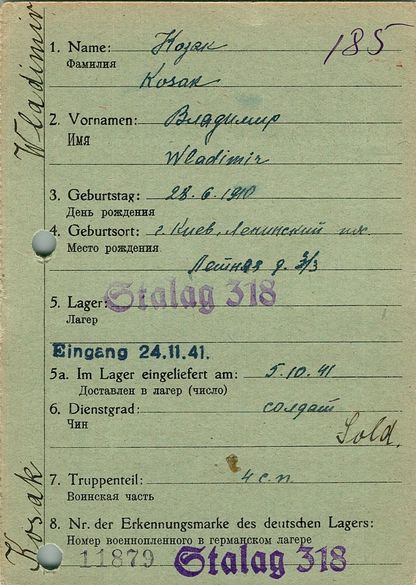 185
Wladimir
1. Name: Козак
Фамилия
Kosak
2. Vornamen: Владимир
Имя
Wladimir
3. Geburtstag: 28.6.1910
День рождения
4. Geburtsort: г. Киев, Ленинский
Место рождения
Летная д. 3/3
5. Lager: Stalag 318
Лагер
Eingang 24.11.41.
5a. Im Lager eingeliefert am: 5.10.41
Доставлен в лагер (число)
6. Dienstgrad: солдат
Чин
Sold.
7. Truppenteil: 4 с.п.
Воинская часть
8. Nr. der Erkennungsmarke des deutschen Lagers:
Номер военнопленного в германском лагере
11879 Stalag 318
Kosak